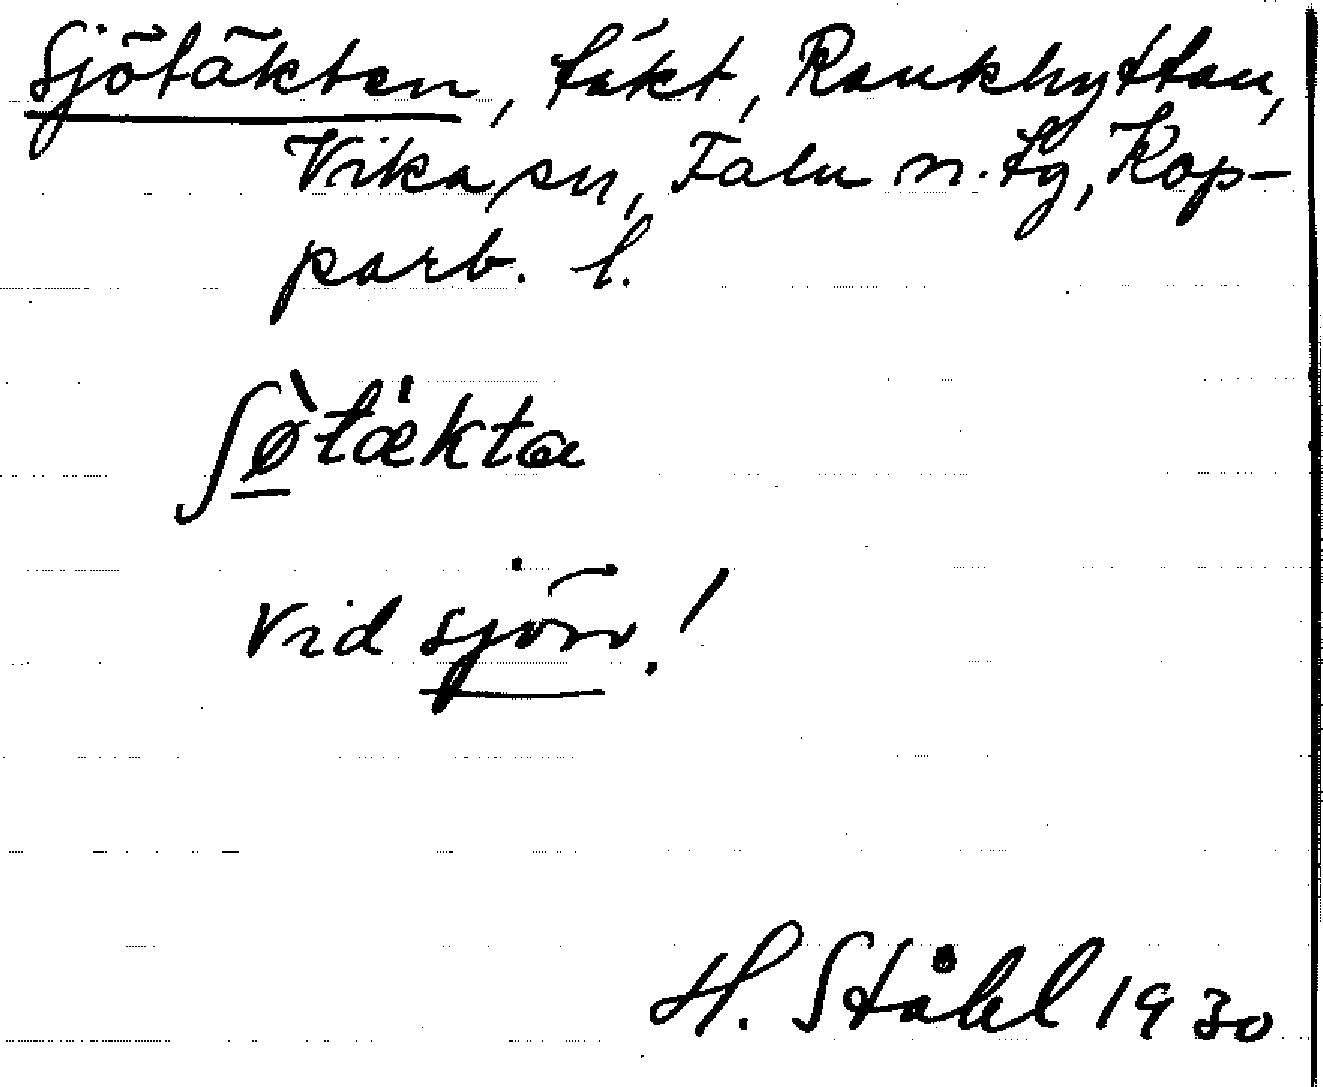 Sjötäkten, täkt, Rankhyttan,
Vika sn, Falu n. tg, Kop-
parb. l.
ʃø̀tækta
Vid sjön!
H. Ståhl 1930